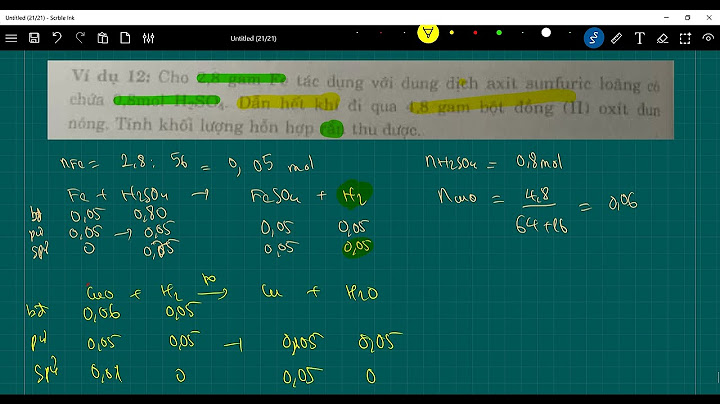 Untitled (21/21) - Scrble Ink
Untitled (21/21)
Ví dụ 12: Cho 2,8 gam Fe tác dụng với dung dịch axit sunfuric loãng có
chứa 0,8mol H₂SO₄. Dẫn hết khí đi qua 4,8 gam bột đồng (II) oxit đun
nóng. Tính khối lượng hỗn hợp rắn thu được.
nFe = 2,8 : 56 = 0,05 mol
nH2SO4 = 0,8mol
Fe + H2SO4 → FeSO4 + H2
nCuO = 4,8 / 64+16 = 0,06
bđ 0,05 0,80
pứ 0,05 → 0,05 0,05 0,05
spứ 0 0,05 0,05
CuO + H2 t° → Cu + H2O
bđ 0,06 0,05
pứ 0,05 0,05 → 0,05 0,05
spứ 0,01 0 0,05 0